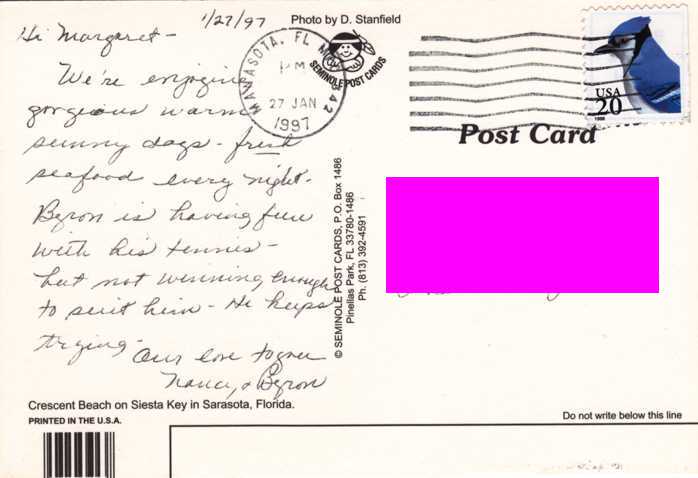 1/27/97
Photo by D. Stanfield
Hi Margaret -
We're enjoying
gorgeous warm
sunny days - fresh
seafood every night.
Byron is having fun
with his tennis -
but not winning enough
to suit him - He keeps
trying -
Our love to you
Nancy & Byron
MANASOTA, FL
PM
27 JAN
1997
342
SEMINOLE POST CARDS
USA
20
1996
Post Card
© SEMINOLE POST CARDS, P.O. Box 1486
Pinellas Park, FL 33780-1486
Ph. (813) 392-4591
Crescent Beach on Siesta Key in Sarasota, Florida.
PRINTED IN THE U.S.A.
Do not write below this line